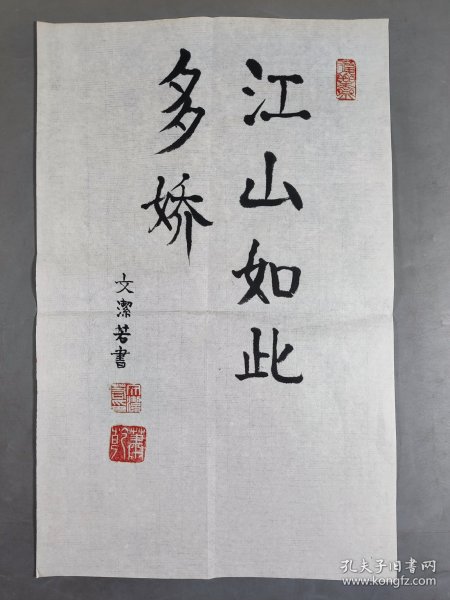 江山如此
多娇
文潔若書
孔夫子旧书网
www.kongfz.com